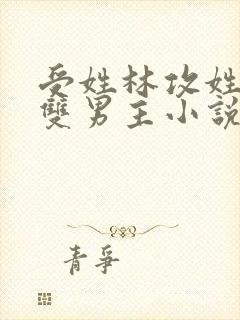 受姓林攻姓
雙男主小說
青爭